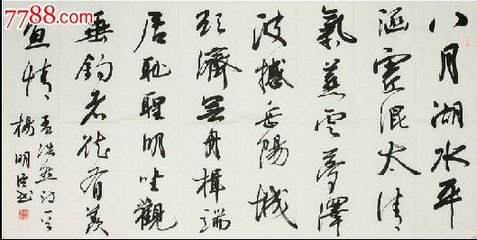 7788.com
八月湖水平
涵虛混太清
氣蒸云夢澤
波撼岳陽城
欲濟無舟楫端
居耻聖明坐觀
垂釣者徒有羨
魚情
孟浩然詩一首
楊明臣书